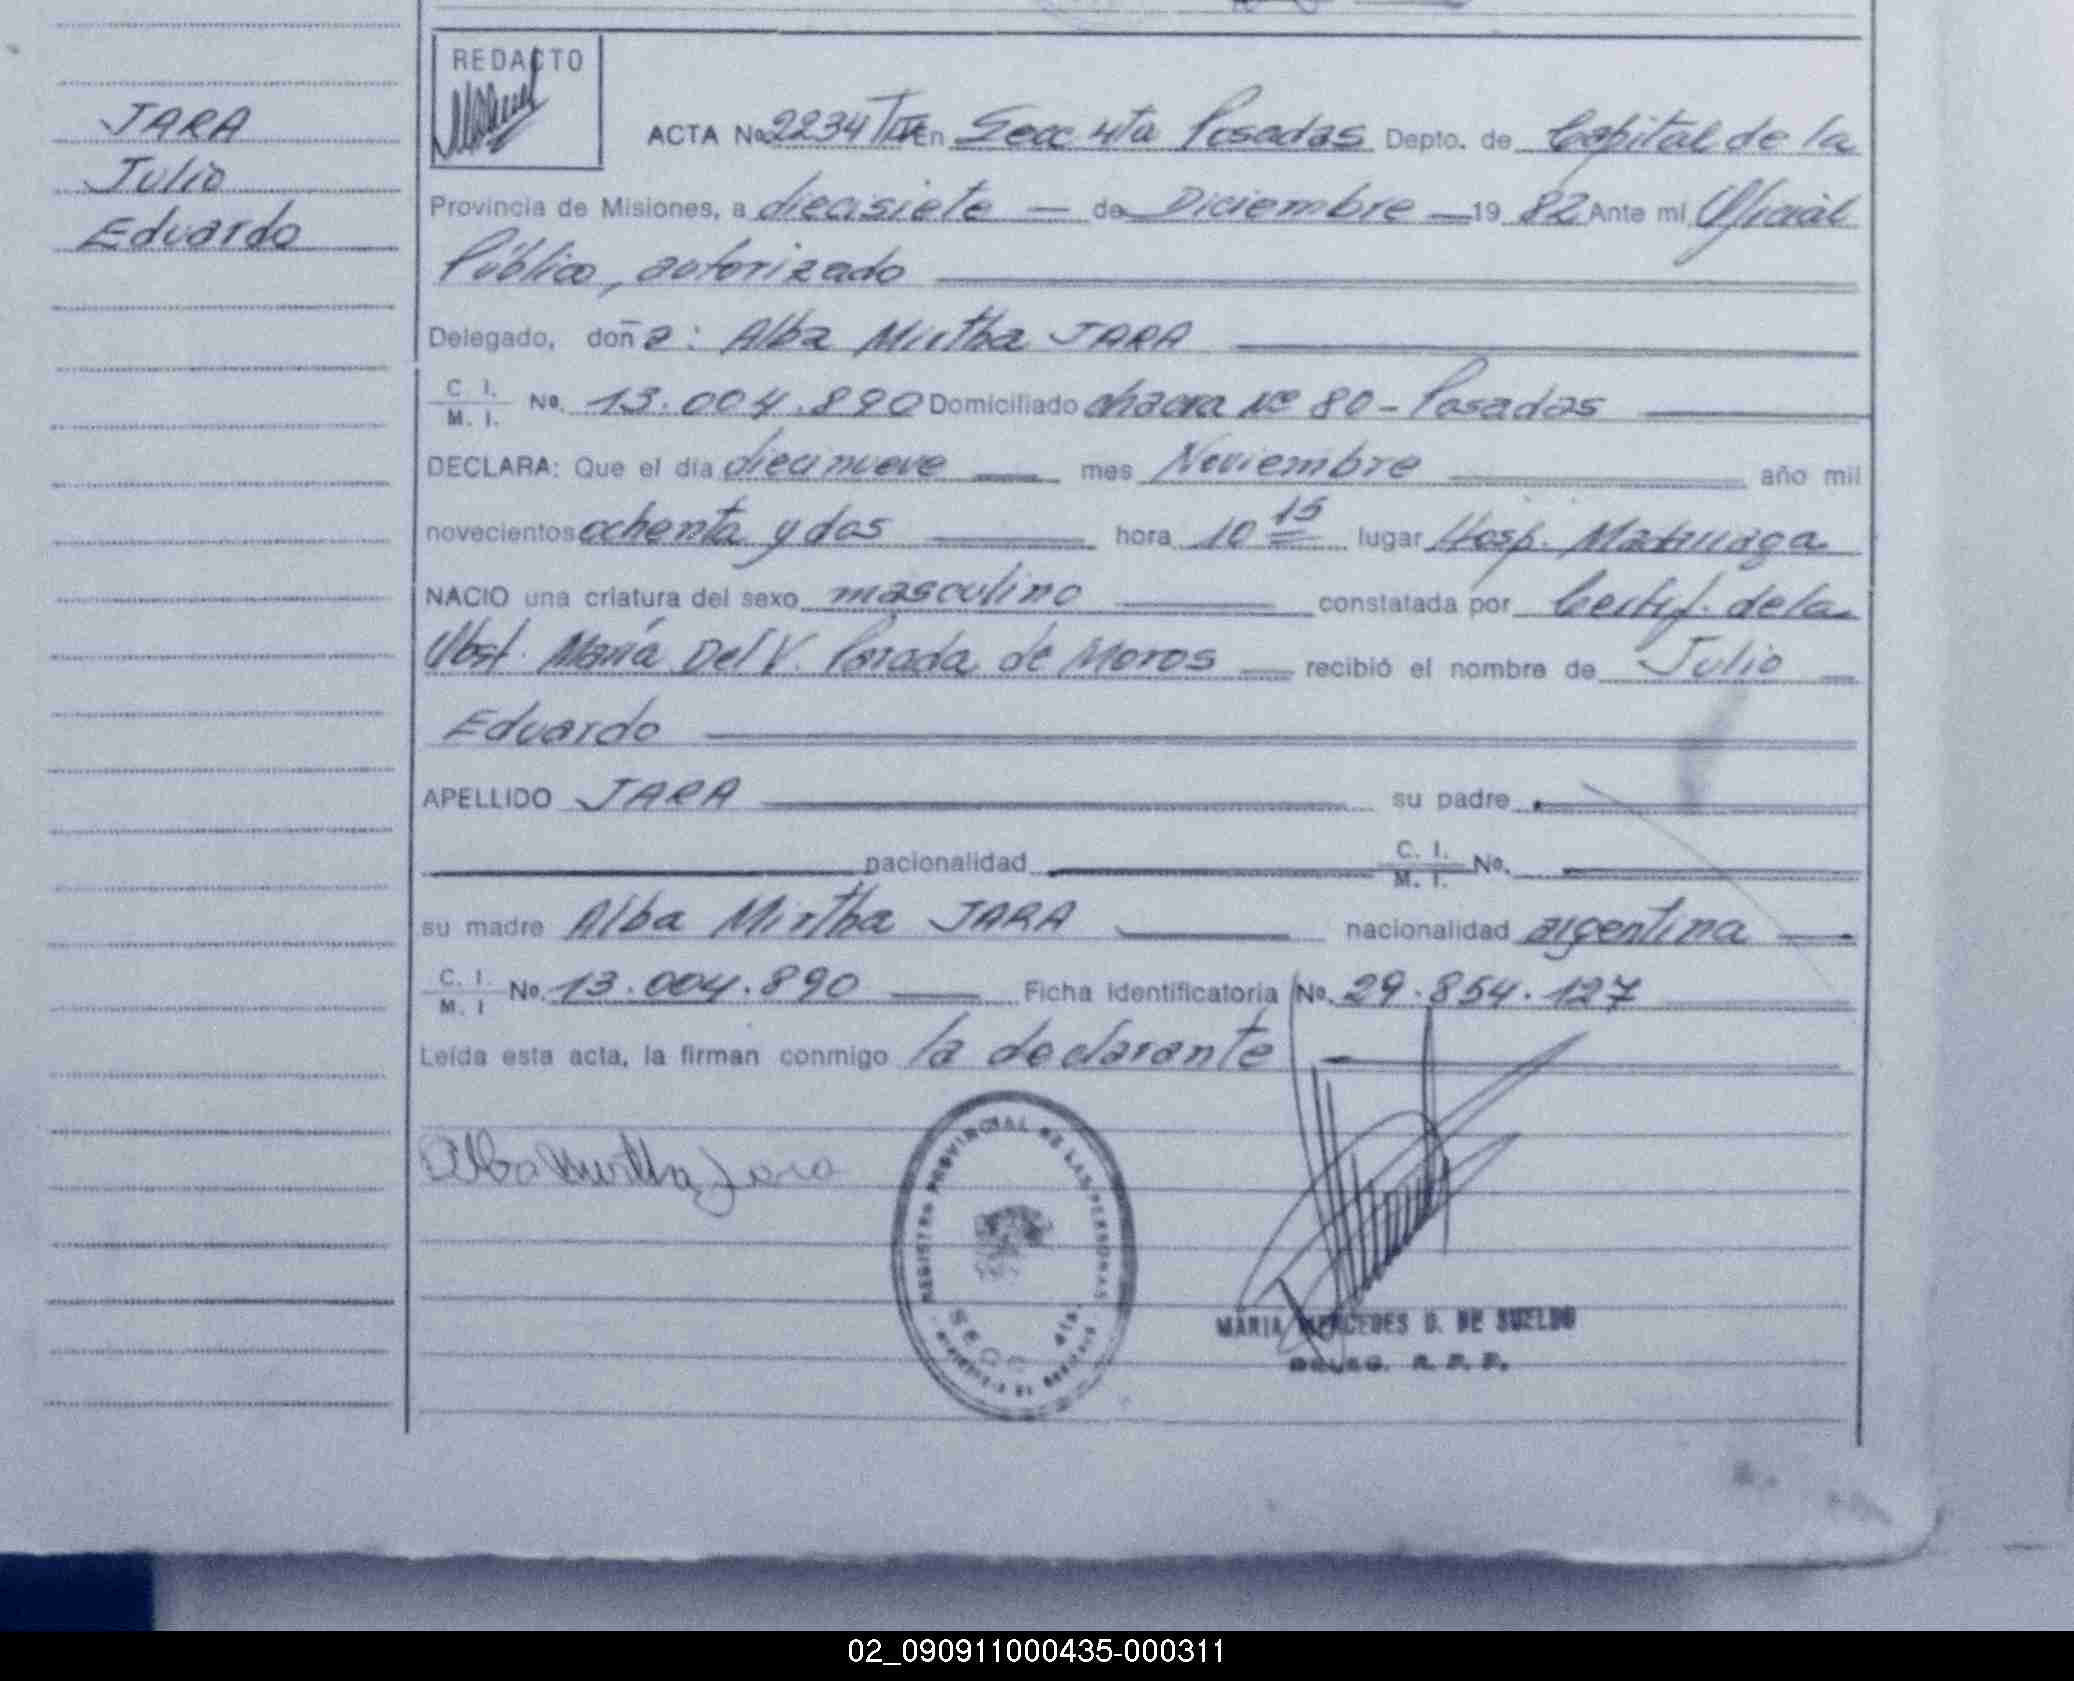 JARA
Julio
Eduardo
REDACTO
ACTA No 2234 En Secc 4ta Posadas Depto. de Capital de la
Provincia de Misiones, a diecisiete — de Diciembre — 19 82 Ante mi Oficial
Público, autorizado
Delegado, doña: Alba Mirtha JARA
C. I. / M. I. No. 13.004.890 Domiciliado chacra Nº 80 - Posadas
DECLARA: Que el día diecinueve — mes Noviembre — año mil
novecientos ochenta y dos — hora 10 15 lugar Hosp. Madariaga
NACIO una criatura del sexo masculino — constatada por Certif. de la
Obst. María Del V. Parada de Moros — recibió el nombre de Julio —
Eduardo
APELLIDO JARA — su padre
nacionalidad C. I. / M. I. No.
su madre Alba Mirtha JARA — nacionalidad argentina —
C. I. / M. I No. 13.004.890 — Ficha Identificatoria No. 29.854.127
Leída esta acta, la firman conmigo la declarante
Alba Mirtha Jara
REGISTRO PROVINCIAL DE LAS PERSONAS
SECC. 4ta.
MARIA MERCEDES D. DE SUELDO
DELEG. R. P. P.
02_090911000435-000311